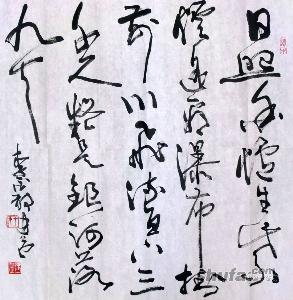 日照香爐生紫
煙遥看瀑布挂
前川飛流直下三
千尺疑是銀河落
九天